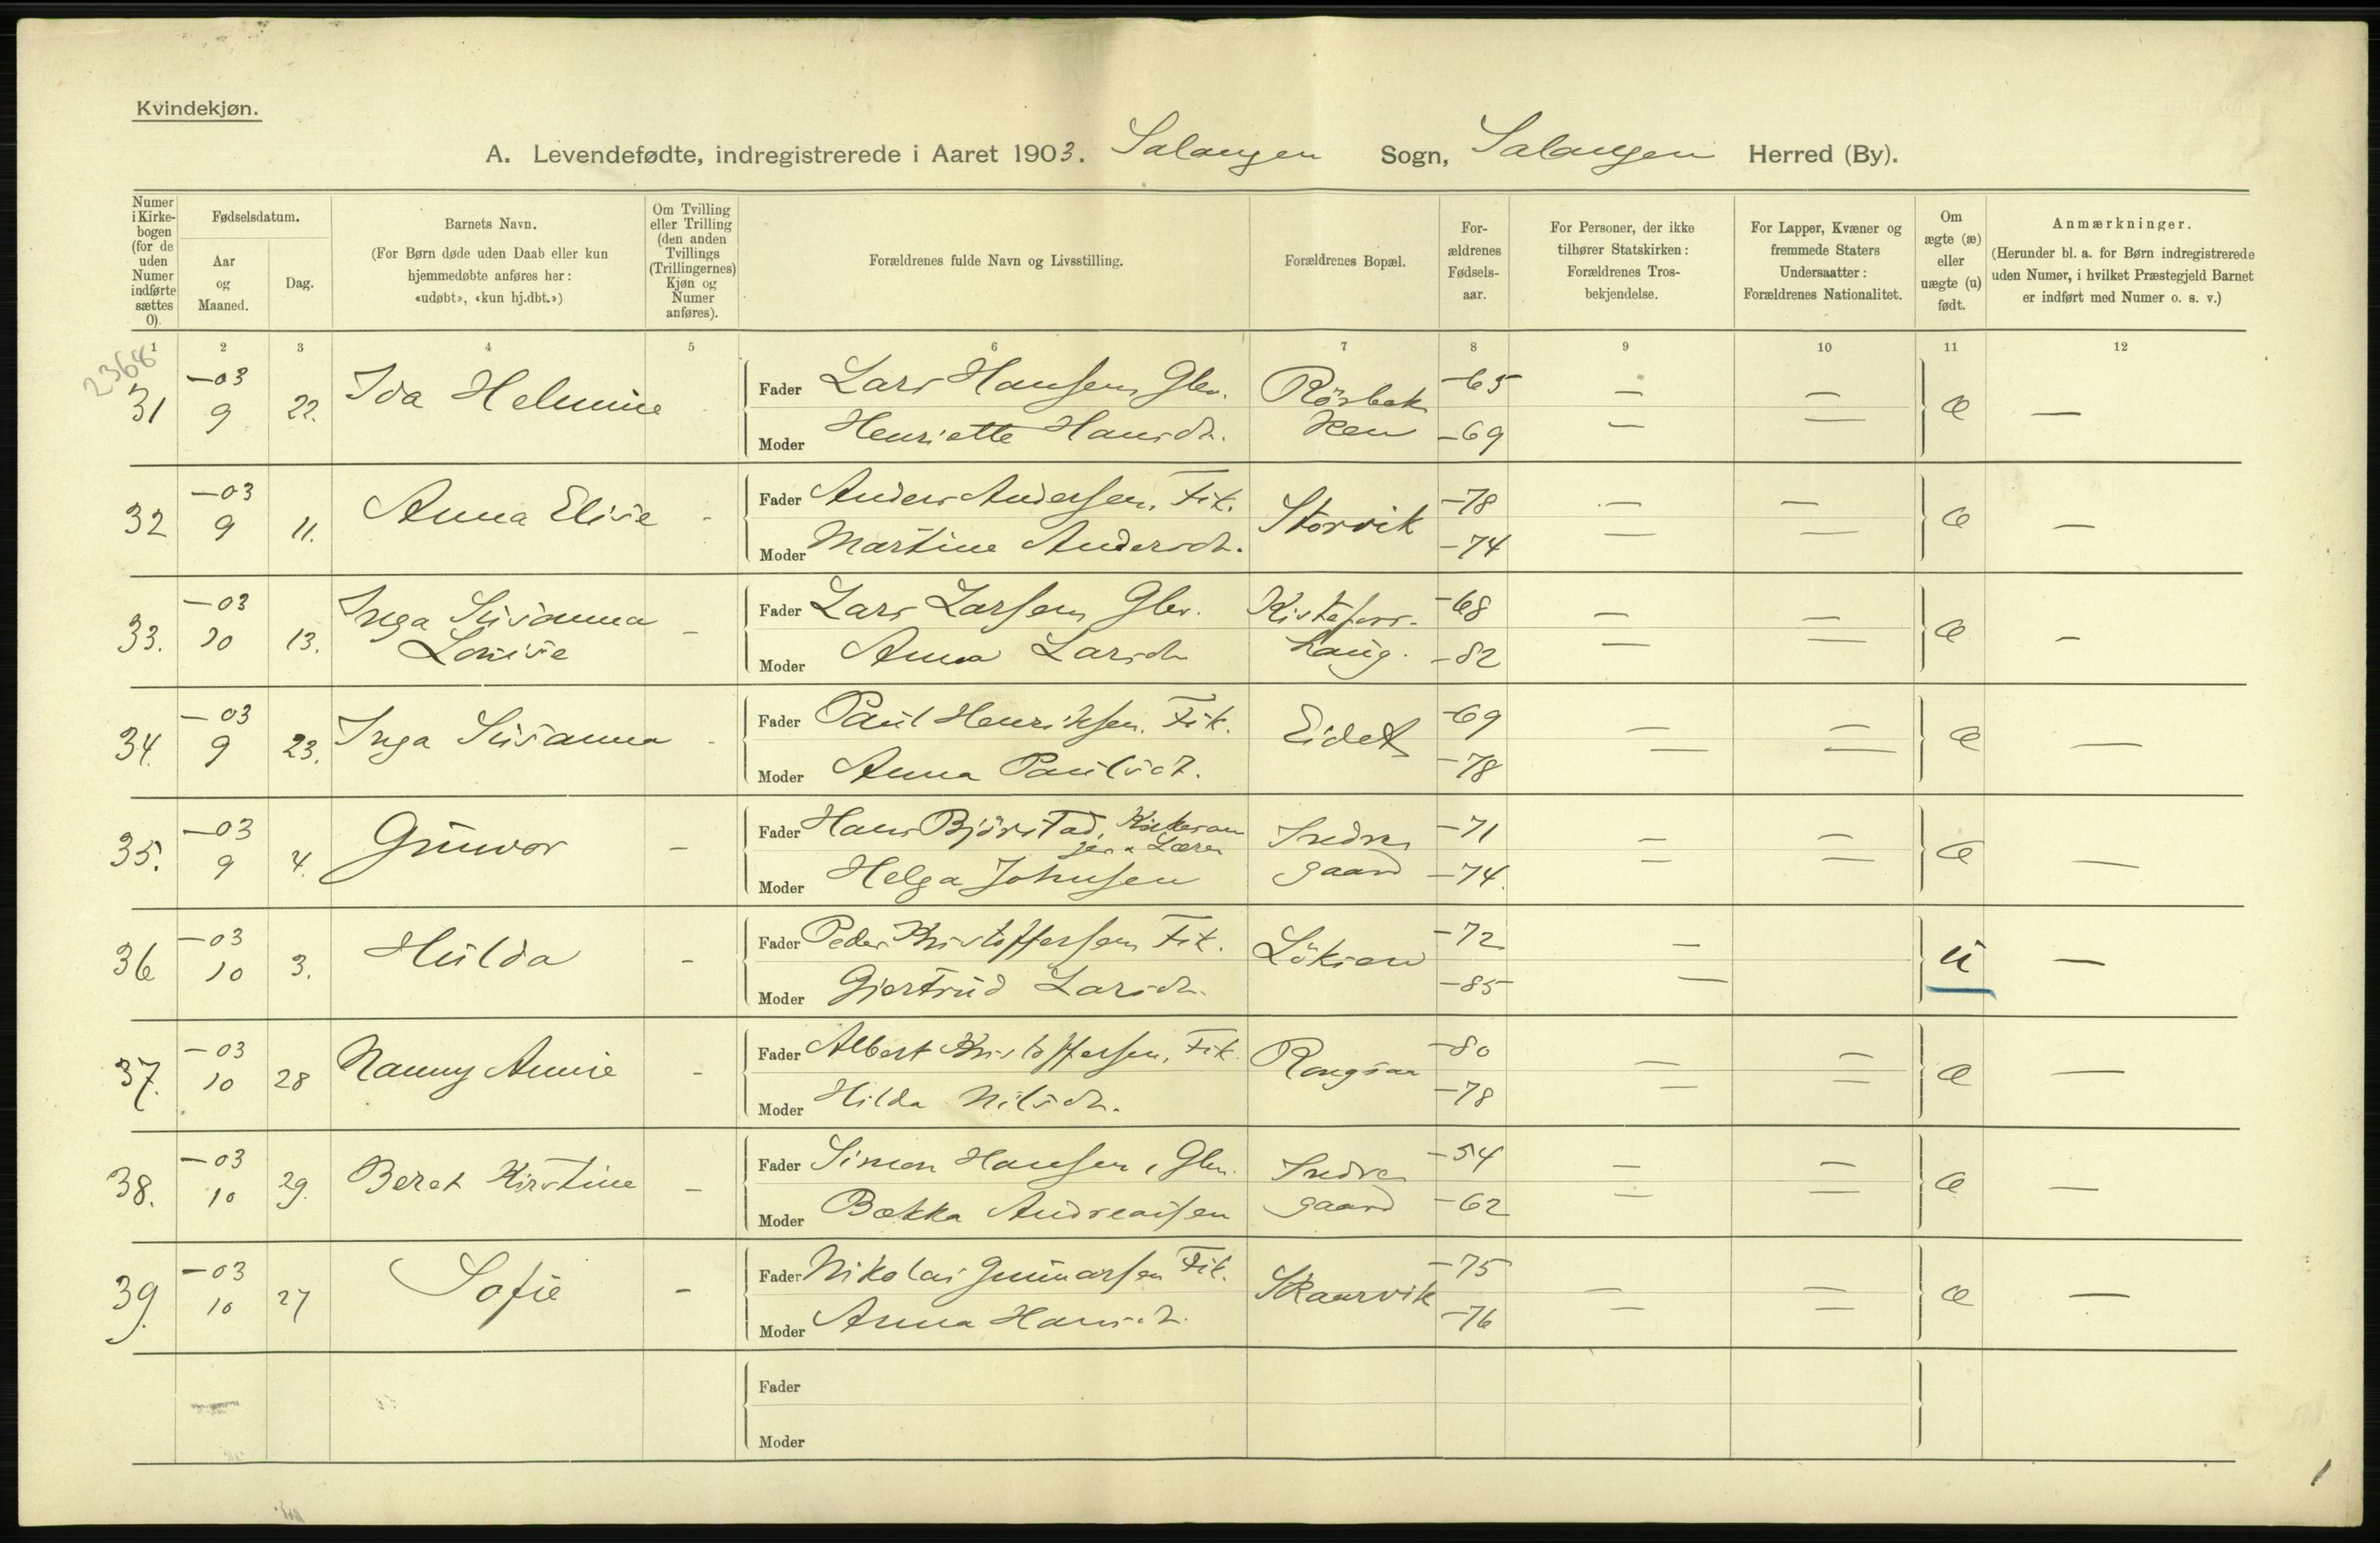 Kvindekjøn.
A. Levendefødte, indregistrerede i Aaret 1903. Salangen Sogn, Salangen Herred (By).
Numer i Kirkebogen (for de uden Numer indførte sættes 0).
Fødselsdatum.
Aar og Maaned.
Dag.
Barnets Navn.
(For Børn døde uden Daab eller kun hjemmedøbte anføres her: «udøbt», «kun hj.dbt.»)
Om Tvilling eller Trilling (den anden Tvillings (Trillingernes) Kjøn og Numer anføres).
Forældrenes fulde Navn og Livsstilling.
Forældrenes Bopæl.
Forældrenes Fødselsaar.
For Personer, der ikke tilhører Statskirken: Forældrenes Trosbekjendelse.
For Lapper, Kvæner og fremmede Staters Undersaatter: Forældrenes Nationalitet.
Om ægte (æ) eller uægte (u) født.
Anmærkninger.
(Herunder bl. a. for Børn indregistrerede uden Numer, i hvilket Præstegjeld Barnet er indført med Numer o. s. v.)
1 2 3 4 5 6 7 8 9 10 11 12
2368
31 —03 9 22. Ida Helmine
Fader Lars Hansen, Gbr. Rösbak —65 — —
Moder Henriette Hansdt. ken —69 — — æ —
32 —03 9 11. Anna Elise -
Fader Anders Andersen, Fik. Storvik —78 — —
Moder Martine Andersdt. —74 — — æ —
33. —03 10 13. Inga Susanna Lovise -
Fader Lars Larsen, Gbr. Kistefors- —68 — —
Moder Anna Larsdt haug. —82 — — æ —
34. —03 9 23. Inga Susanna -
Fader Paul Henriksen, Fik. Eidet —69 — —
Moder Anna Paulsdt. —78 — — æ —
35. —03 9 4. Gunvor -
Fader Hans Björstad, Kirkesanger & Lærer Indre —71 — —
Moder Helga Johnsen gaard —74. — — æ —
36 —03 10 3. Hulda -
Fader Peder Kristoffersen Fik. Löksen —72 —
Moder Gjertrud Larsdt. —85 — u —
37. —03 10 28 Nanny Annie -
Fader Albert Kristoffersen, Fik. —80 — —
Moder Hilda Nilsdt. —78 — — æ —
38. —03 10 29. Beret Kirstine -
Fader Simon Hansen, Gbr. Indre —54 — —
Moder Bokka Andreassen gaard —62 — — æ —
39. —03 10 27 Sofie -
Fader Nikolai Gunnarsen Fik. Skaarvik —75 — —
Moder Anna Hansdt. —76 — — æ —
Fader
Moder
1